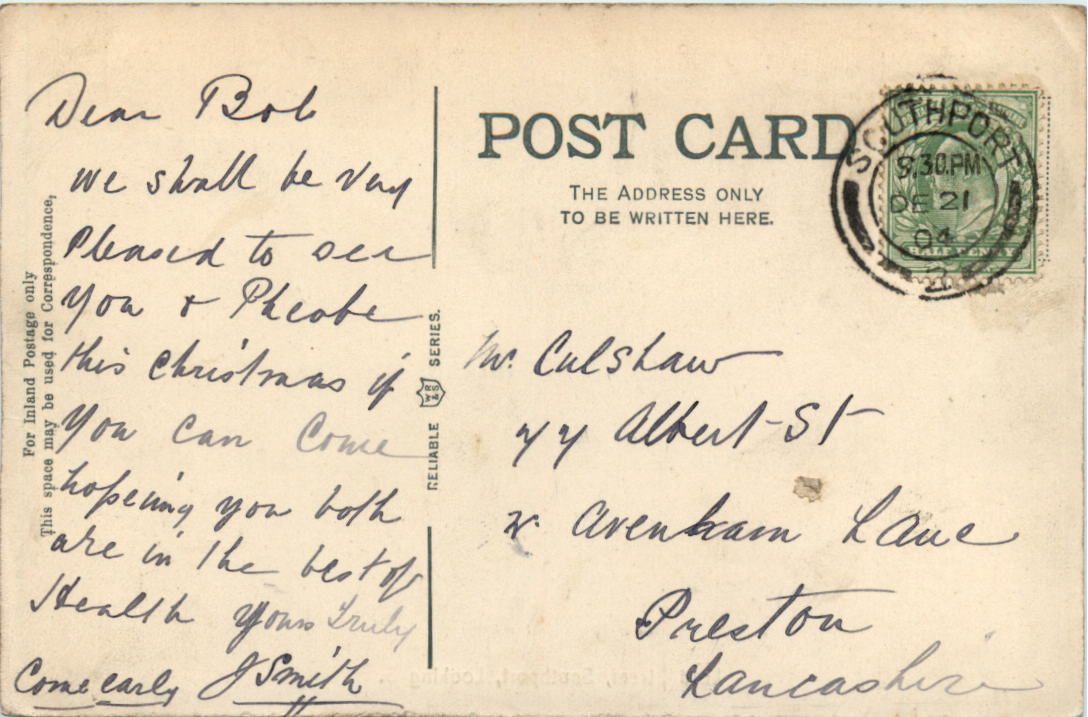 Dear Bob
we shall be very
Pleased to see
you & Pheobe
this christmas if
you can come
hopeing you both
are in the best of
Health yours Truly
Come early J Smith
For Inland Postage only
This space may be used for Correspondence,
RELIABLE WR&S SERIES.
POST CARD
THE ADDRESS ONLY
TO BE WRITTEN HERE.
SOUTHPORT
9.30.PM
DE 21
04
2
Mr. Culshaw
77 Albert St
Avenham Lane
Preston
Lancashire